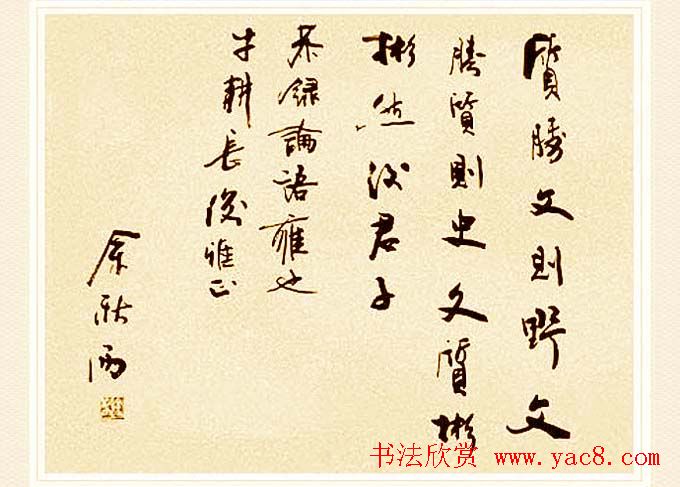 質勝文則野文
勝質則史文質彬
彬然後君子
恭錄論語雍也
耕長雅正
余秋雨
书法欣赏 www.yac8.com